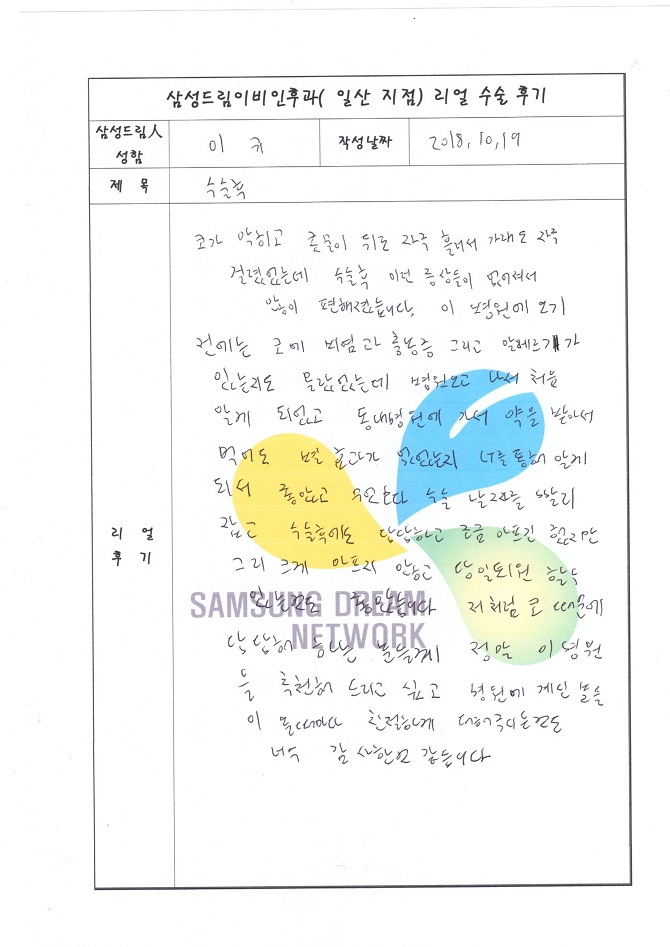 삼성드림이비인후과( 일산 지점) 리얼 수술 후기
삼성드림人 성함
이 귀
작성날짜
2018, 10, 19
제 목
수술후
리 얼 후 기
코가 막히고 콧물이 뒤로 자주 흘러서 가래도 자주
걸렸었는데 수술후 이런 증상들이 없어져서
많이 편해졌습니다. 이 병원에 오기
전에는 코에 비염과 흉농증 그리고 알레르기가
있는지도 몰랐었는데 병원오고 나서 처음
알게 되었고 동네병원에 가서 약을 받아서
먹어도 별 효과가 없었는지 너를 통해 알게
되서 좋았고 수술 날짜를 빨리
잡고 수술후에도 답답하고 조금 아프긴 했지만
그리 크게 아프지 않고 당일퇴원 할수
있는것도 좋았습니다 저처럼 코 때문에
답답해 하는 분들게 정말 이 병원
을 추천해 드리고 싶고 병원에 계신 분들
이 올때마다 친절하게 대해주시는것도
너무 감사한것 같습니다
SAMSUNG DREAM
NETWORK